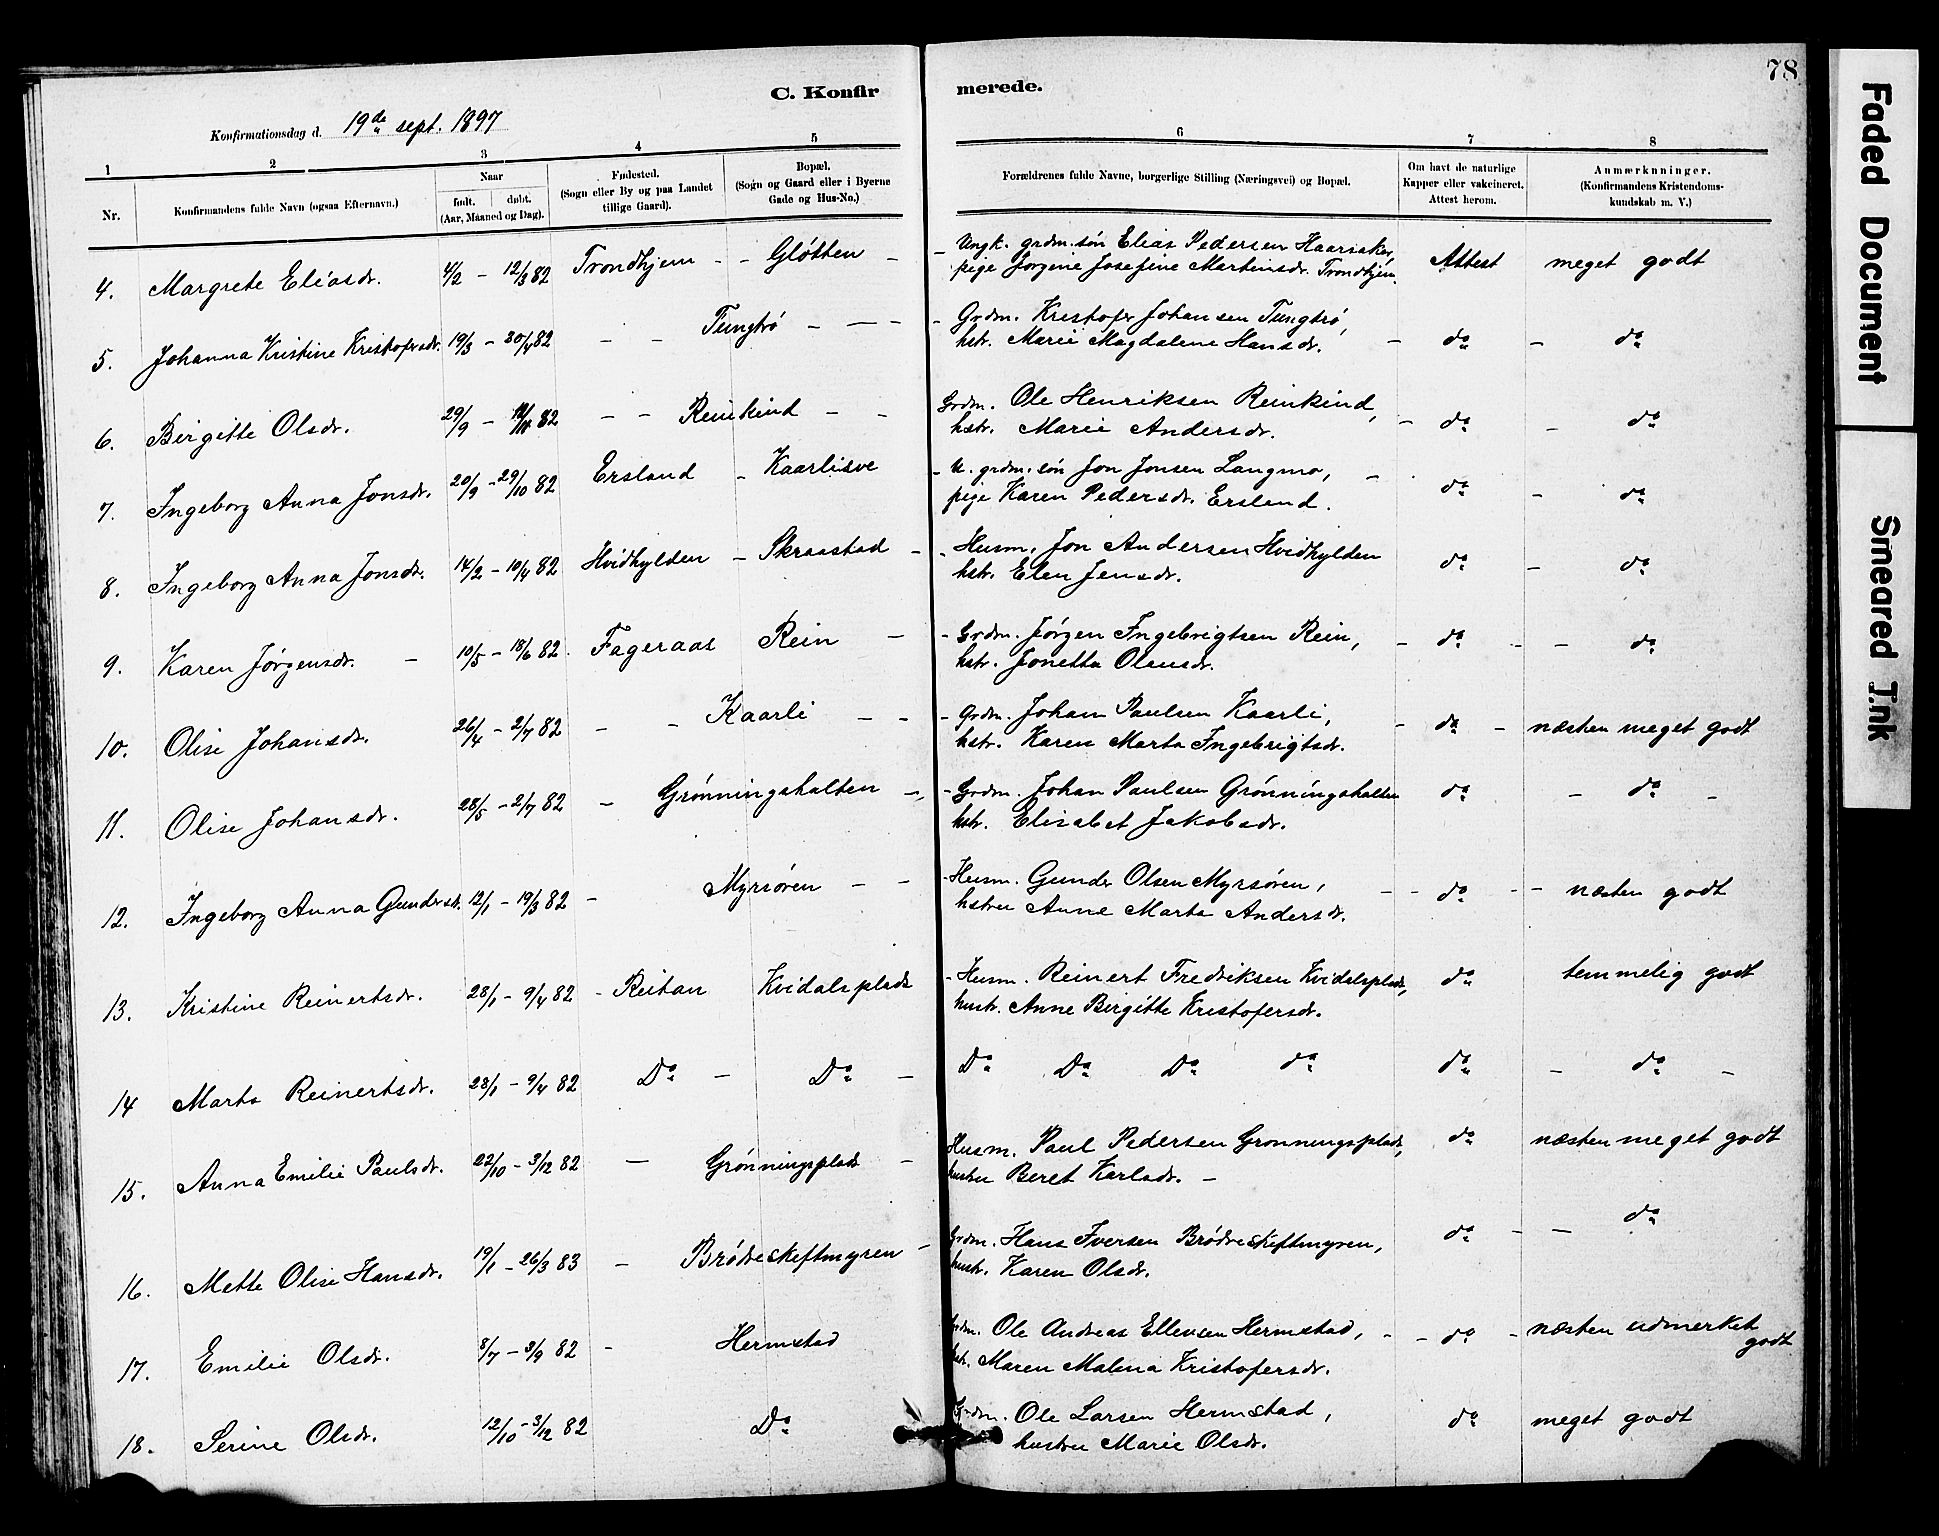 78
C. Konfirmerede.
Konfirmationsdag d. 19de sept. 1897
1 2 3 4 5 6 7 8
Nr. Konfirmandens fulde Navn (ogsaa Efternavn.) Naar født. døbt. (Aar, Maaned og Dag). Fødested. (Sogn eller By og paa Landet tillige Gaard). Bopæl. (Sogn og Gaard eller i Byerne Gade og Hus-No.) Forældrenes fulde Navne, borgerlige Stilling (Næringsvei) og Bopæl. Om havt de naturlige Kapper eller vakcineret. Attest herom. Anmærknninger. (Konfirmandens Kristendoms-kundskab m. V.)
4. Margrete Eliasdr. 4/2 – 12/3 82 Trondhjem - - Gløtten - - Ungk. grdm.søn Elias Pedersen Haarsaker, Attest meget godt
pige Jorgine Josefine Martinsdr. Trondhjem.
5. Johanna Kristine Kristofersdr. 19/3 – 30/4 82 - - Tungtrø - - - - Grdm. Kristofer Johansen Tungtrø, - do - do
hstr. Marie Magdalene Hansdr.
6. Birgitte Olsdr. 29/9 – 12/11 82 - - Reinkind - - Grdm. Ole Henriksen Reinkind, - do - do
hstr. Marie Andersdr.
7. Ingeborg Anna Jonsdr. 20/9 – 29/10 82 Ersland - Kaarlisve - U. grdm.søn Jon Jonsen Langmo, - do - do
pige Karen Pedersdr. Ersland.
8. Ingeborg Anna Jonsdr. 14/2 – 10/4 82 Hvidhylden - Skraastad - - Husm. Jon Andersen Hvidhylden do - do
hstr. Elen Jensdr.
9. Karen Jørgensdr. - 10/5 – 18/6 82. Fageraas Rein - - Grdm. Jørgen Ingebrigtsen Rein, - do - - do
hstr. Jonetta Olensdr.
10. Olise Johansdr. 26/4 – 2/7 82 - - Kaarli - - - Grdm. Johan Paulsen Kaarli, - do - næsten meget godt
hstr. Karen Marta Ingebrigtsdr.
11. Olise Johansdr. 28/5 – 2/7 82 - Grønningshalten - - Grdm. Johan Paulsen Grønningshalten do - do -
hstr. Elisabet Jakobsdr.
12. Ingeborg Anna Gundersdr. 12/1 – 19/3 82 - Myrsøren - - - Husm. Gunder Olsen Myrsøren, - - do - - næsten godt
hstru Anne Marta Andersdr.
13. Kristine Reinertsdr. 28/1 – 9/4 82 - Reitan Kvidalsplads - Husm. Reinert Fredriksen Kvidalsplads, do temmelig godt
hustr. Anne Birgitte Kristofersdr.
14 Marta Reinertsdr. 28/1 – 9/4 82 Do - Do - Do Do Do do do - do -
15. Anna Emilie Paulsdr. 22/10 – 3/12 82 - Grønningsplads - Husm. Paul Pedersen Grønningsplads, do næsten meget godt
hustru Beret Karlsdr. -
16. Mette Olise Hansdr. 19/1 – 26/3 83 - Brødreskeftmyren - Grdm. Hans Iversen Brødreskeftmyren, do - - do
hustr. Karen Olsdr.
17. Emilie Olsdr. 8/7 – 3/9 82 - Hermstad Grdm. Ole Andreas Ellevsen Hermstad, - - do - næsten udmerket godt
hstr. Maren Malena Kristofersdr.
18. Serine Olsdr. 12/10 – 3/12 82 Do Grdm. Ole Larsen Hermstad, do meget godt
hustru Marie Olsdr.
Faded Document
Smeared Ink